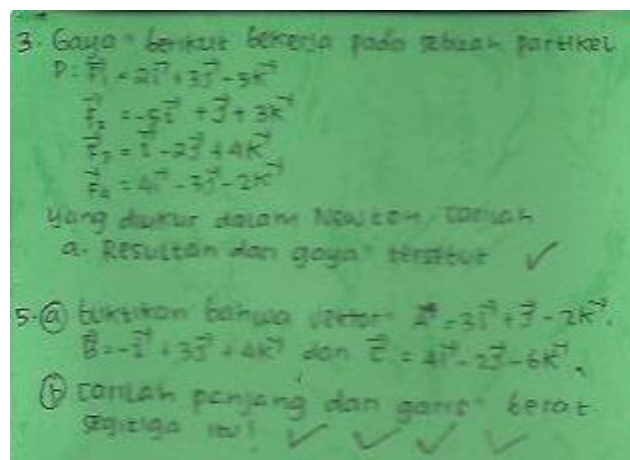 3. Gaya" berikut bekerja pada sebuah partikel
P: F⃗₁ = 2i⃗ + 3j⃗ - 5k⃗
F⃗₂ = -5i⃗ + j⃗ + 3k⃗
F⃗₃ = i⃗ - 2j⃗ + 4k⃗
F⃗₄ = 4i⃗ - 3j⃗ - 2k⃗
yang diukur dalam Newton, carilah
a. Resultan dari gaya" tersebut ✓
5. ⓐ buktikan bahwa vektor" A⃗ = 3i⃗ + j⃗ - 2k⃗.
B⃗ = -i⃗ + 3j⃗ + 4k⃗ dan C⃗ = 4i⃗ - 2j⃗ - 6k⃗,
ⓑ carilah panjang dan garis" berat
segitiga itu! ✓ ✓ ✓ ✓